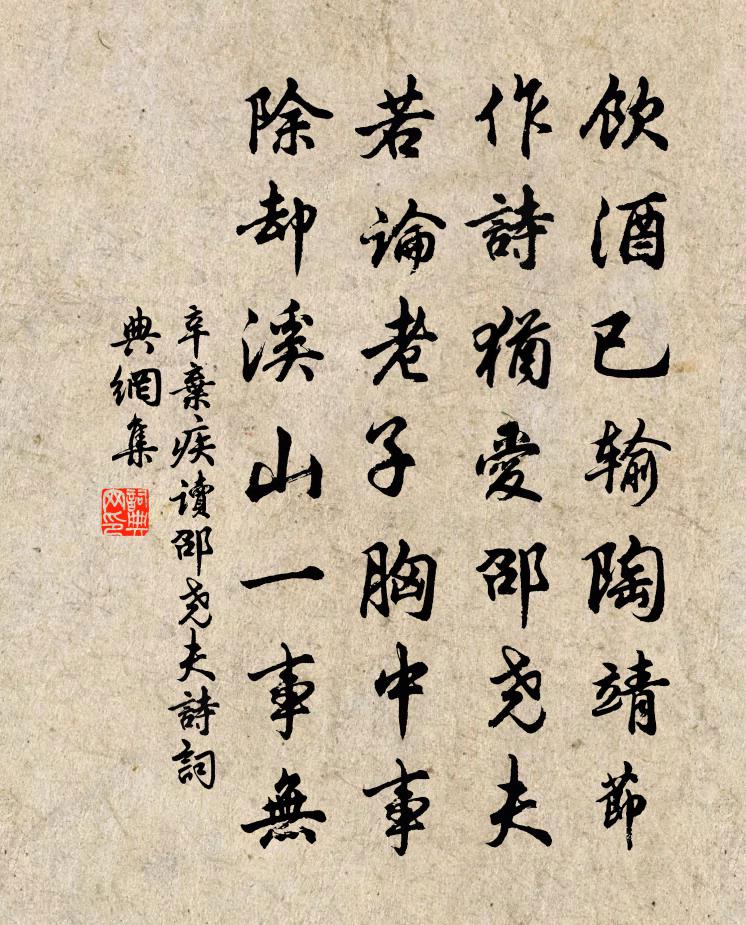 飲酒已输陶靖節
作詩猶愛邵尧夫
若論老子胸中事
除却溪山一事無
辛棄疾讀邵尧夫詩詞
典網集
詞典网印